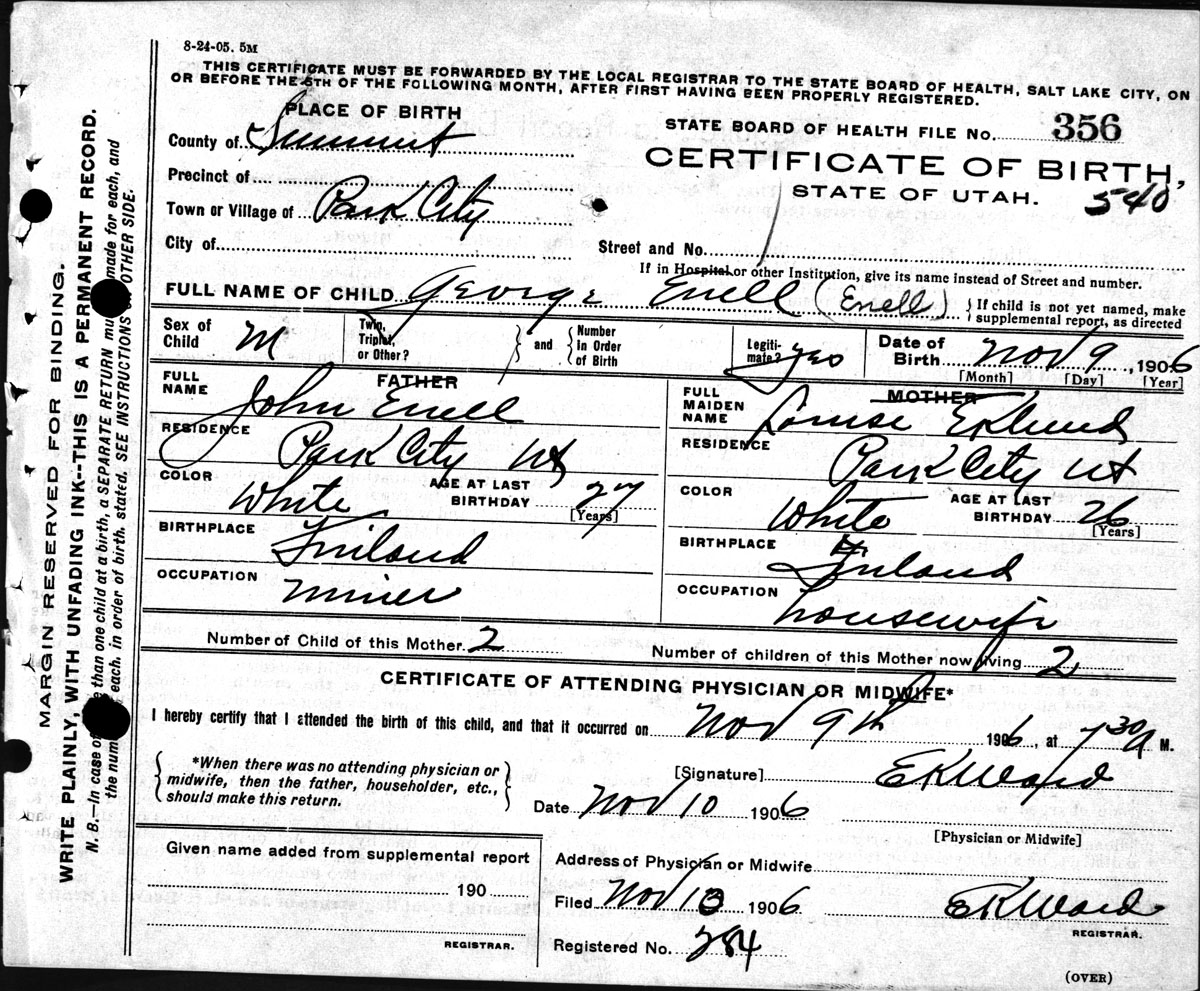 8-24-05. 5M
THIS CERTIFICATE MUST BE FORWARDED BY THE LOCAL REGISTRAR TO THE STATE BOARD OF HEALTH, SALT LAKE CITY, ON
OR BEFORE THE 5TH OF THE FOLLOWING MONTH, AFTER FIRST HAVING BEEN PROPERLY REGISTERED.
PLACE OF BIRTH
County of Summit
Precinct of
Town or Village of Park City
City of
STATE BOARD OF HEALTH FILE No. 356
CERTIFICATE OF BIRTH,
STATE OF UTAH.
540
Street and No.
If in Hospital or other Institution, give its name instead of Street and number.
FULL NAME OF CHILD George Enell (Enell) If child is not yet named, make
supplemental report, as directed
Sex of Child M
Twin, Triplet, or Other? and Number In Order of Birth
Legitimate? yes
Date of Birth Nov 9, 1906
[Month] [Day] [Year]
FATHER
FULL NAME John Enell
RESIDENCE Park City Ut
COLOR White AGE AT LAST BIRTHDAY 27
[Years]
BIRTHPLACE Finland
OCCUPATION miner
MOTHER
FULL MAIDEN NAME Louise Eklund
RESIDENCE Park City Ut
COLOR White AGE AT LAST BIRTHDAY 26
[Years]
BIRTHPLACE Finland
OCCUPATION housewife
Number of Child of this Mother 2 Number of children of this Mother now living 2
CERTIFICATE OF ATTENDING PHYSICIAN OR MIDWIFE*
I hereby certify that I attended the birth of this child, and that it occurred on Nov 9th 1906, at 7 30 A M.
*When there was no attending physician or
midwife, then the father, householder, etc.,
should make this return.
[Signature] EKWard
Date Nov 10 1906
[Physician or Midwife]
Given name added from supplemental report
190
REGISTRAR.
Address of Physician or Midwife
Filed Nov 10 1906 EKWard
REGISTRAR.
Registered No. 284
(OVER)
MARGIN RESERVED FOR BINDING.
WRITE PLAINLY, WITH UNFADING INK--THIS IS A PERMANENT RECORD.
N. B.—In case of than one child at a birth, a SEPARATE RETURN made for each, and
the num each, in order of birth, stated. SEE INSTRUCTIONS OTHER SIDE.